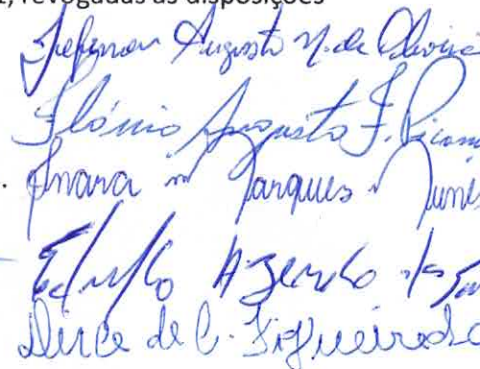 revogadas as disposições
Jefferson Augusto N. de Oliveira
Flávio Augusto F.
Inara m Marques Nunes
Azevedo
Dirce de C. Figueiredo